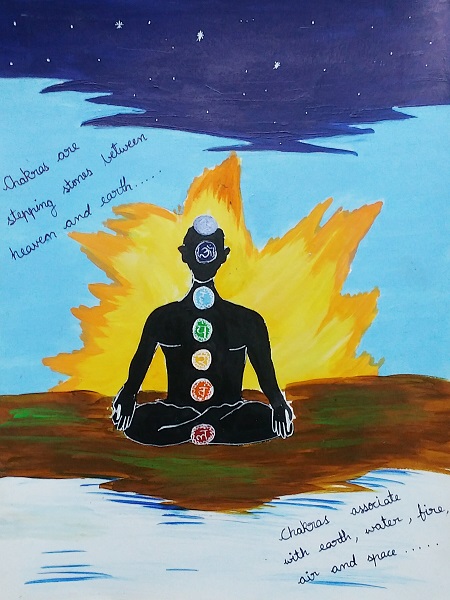 Chakras are
stepping stones between
heaven and earth......
ॐ
Chakras associate
with earth, water, fire,
air and space......